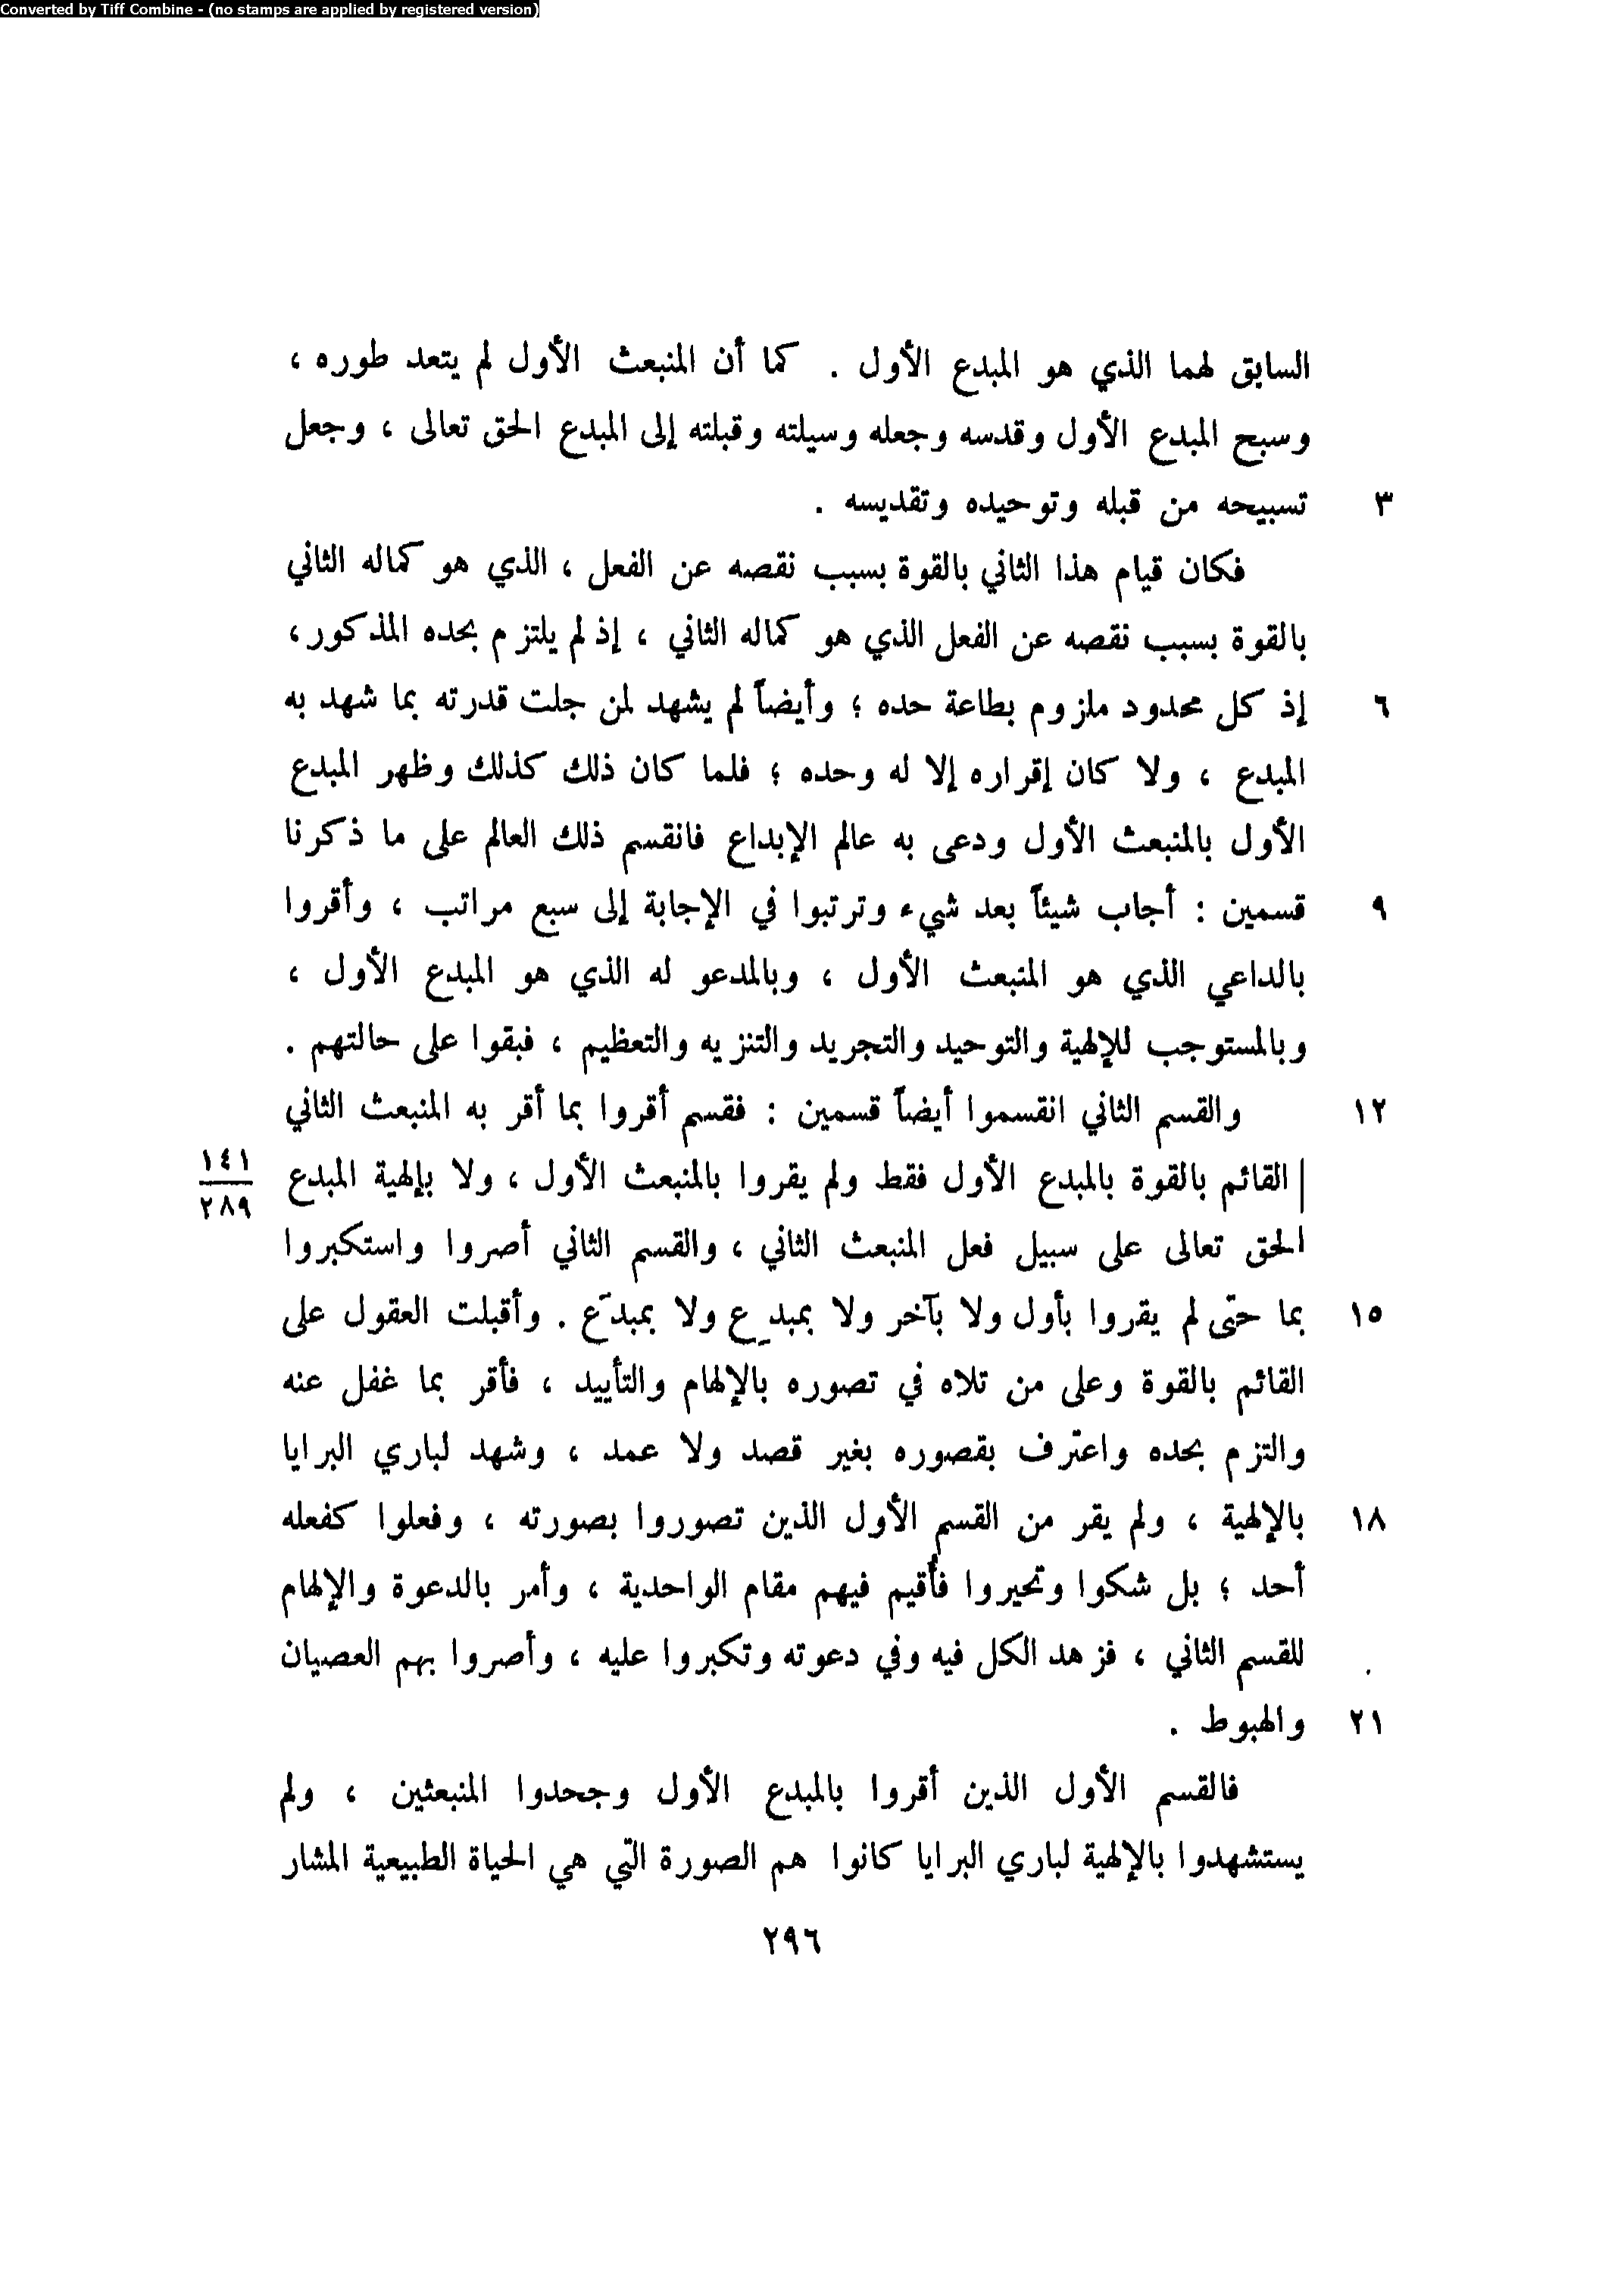 Converted by Tiff Combine - (no stamps are applied by registered version)
السابق لهما الذي هو المبدع الأول . كما أن المنبعث الأول لم يتعد طوره ،
وسبح المبدع الأول وقدسه وجعله وسيلته وقبلته إلى المبدع الحق تعالى ، وجعل
٣ تسبيحه من قبله وتوحيده وتقديسه .
فكان قيام هذا الثاني بالقوة بسبب نقصه عن الفعل ، الذي هو كماله الثاني
بالقوة بسبب نقصه عن الفعل الذي هو كماله الثاني ، إذ لم يلتزم بحده المذكور ،
٦ إذ كل محدود ملزوم بطاعة حده ؛ وأيضاً لم يشهد لمن جلت قدرته بما شهد به
المبدع ، ولا كان إقراره إلا له وحده ؛ فلما كان ذلك كذلك وظهر المبدع
الأول بالمنبعث الأول ودعى به عالم الإبداع فانقسم ذلك العالم على ما ذكرنا
٩ قسمين : أجاب شيئاً بعد شيء وترتبوا في الإجابة إلى سبع مراتب ، وأقروا
بالداعي الذي هو المنبعث الأول ، وبالمدعو له الذي هو المبدع الأول ،
وبالمستوجب للإلهية والتوحيد والتجريد والتنزيه والتعظيم ، فبقوا على حالتهم .
١٢ والقسم الثاني انقسموا أيضاً قسمين : فقسم أقروا بما أقر به المنبعث الثاني
| القائم بالقوة بالمبدع الأول فقط ولم يقروا بالمنبعث الأول ، ولا بإلهية المبدع
١٤١
٢٨٩
الحق تعالى على سبيل فعل المنبعث الثاني ، والقسم الثاني أصروا واستكبروا
١٥ بما حتى لم يقروا بأول ولا بآخر ولا بمبدِع ولا بمبدَع . وأقبلت العقول على
القائم بالقوة وعلى من تلاه في تصوره بالإلهام والتأييد ، فأقر بما غفل عنه
والتزم بحده واعترف بقصوره بغير قصد ولا عمد ، وشهد لباري البرايا
١٨ بالإلهية ، ولم يقر من القسم الأول الذين تصوروا بصورته ، وفعلوا كفعله
أحد ؛ بل شكوا وتحيروا فأقيم فيهم مقام الواحدية ، وأمر بالدعوة والإلهام
للقسم الثاني ، فزهد الكل فيه وفي دعوته وتكبروا عليه ، وأصروا بهم العصيان
٢١ والهبوط .
فالقسم الأول الذين أقروا بالمبدع الأول وجحدوا المنبعثين ، ولم
يستشهدوا بالإلهية لباري البرايا كانوا هم الصورة التي هي الحياة الطبيعية المشار
٢٩٦